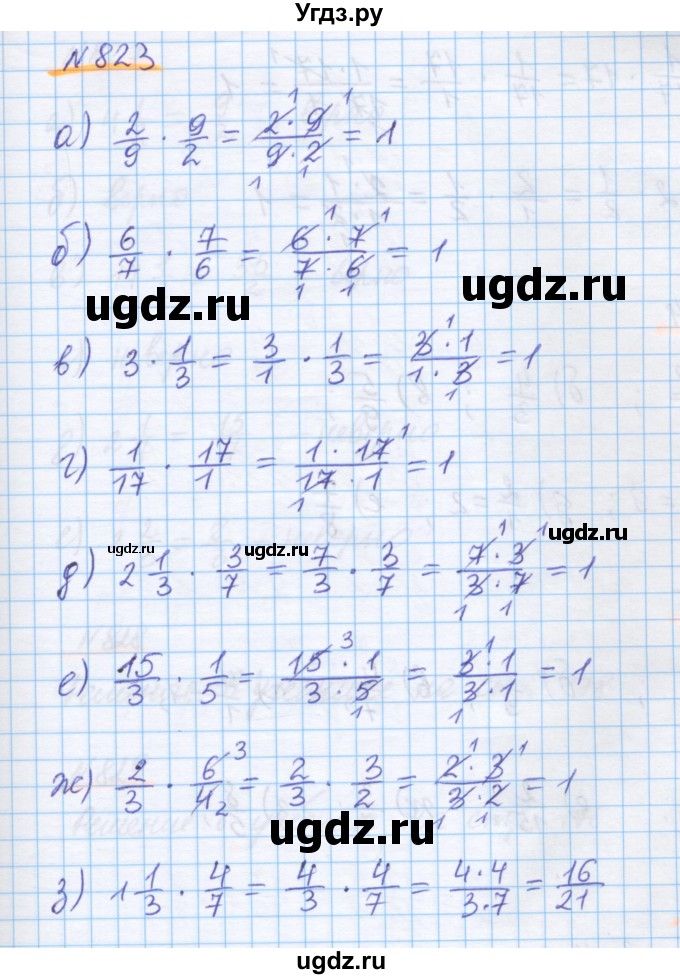 Угдз.ру
№ 823
а) 2/9 · 9/2 = 2·9/9·2 = 1
б) 6/7 · 7/6 = 6·7/7·6 = 1
ugdz.ru ugdz.ru
в) 3 · 1/3 = 3/1 · 1/3 = 3·1/1·3 = 1
г) 1/17 · 17/1 = 1·17/17·1 = 1
ugdz.ru ugdz.ru ugdz.ru
д) 2 1/3 · 3/7 = 7/3 · 3/7 = 7·3/3·7 = 1
е) 15/3 · 1/5 = 15·1/3·5 = 3·1/3·1 = 1
ж) 2/3 · 6/4 = 2/3 · 3/2 = 2·3/3·2 = 1
ugdz.ru ugdz.ru
з) 1 1/3 · 4/7 = 4/3 · 4/7 = 4·4/3·7 = 16/21
ugdz.ru